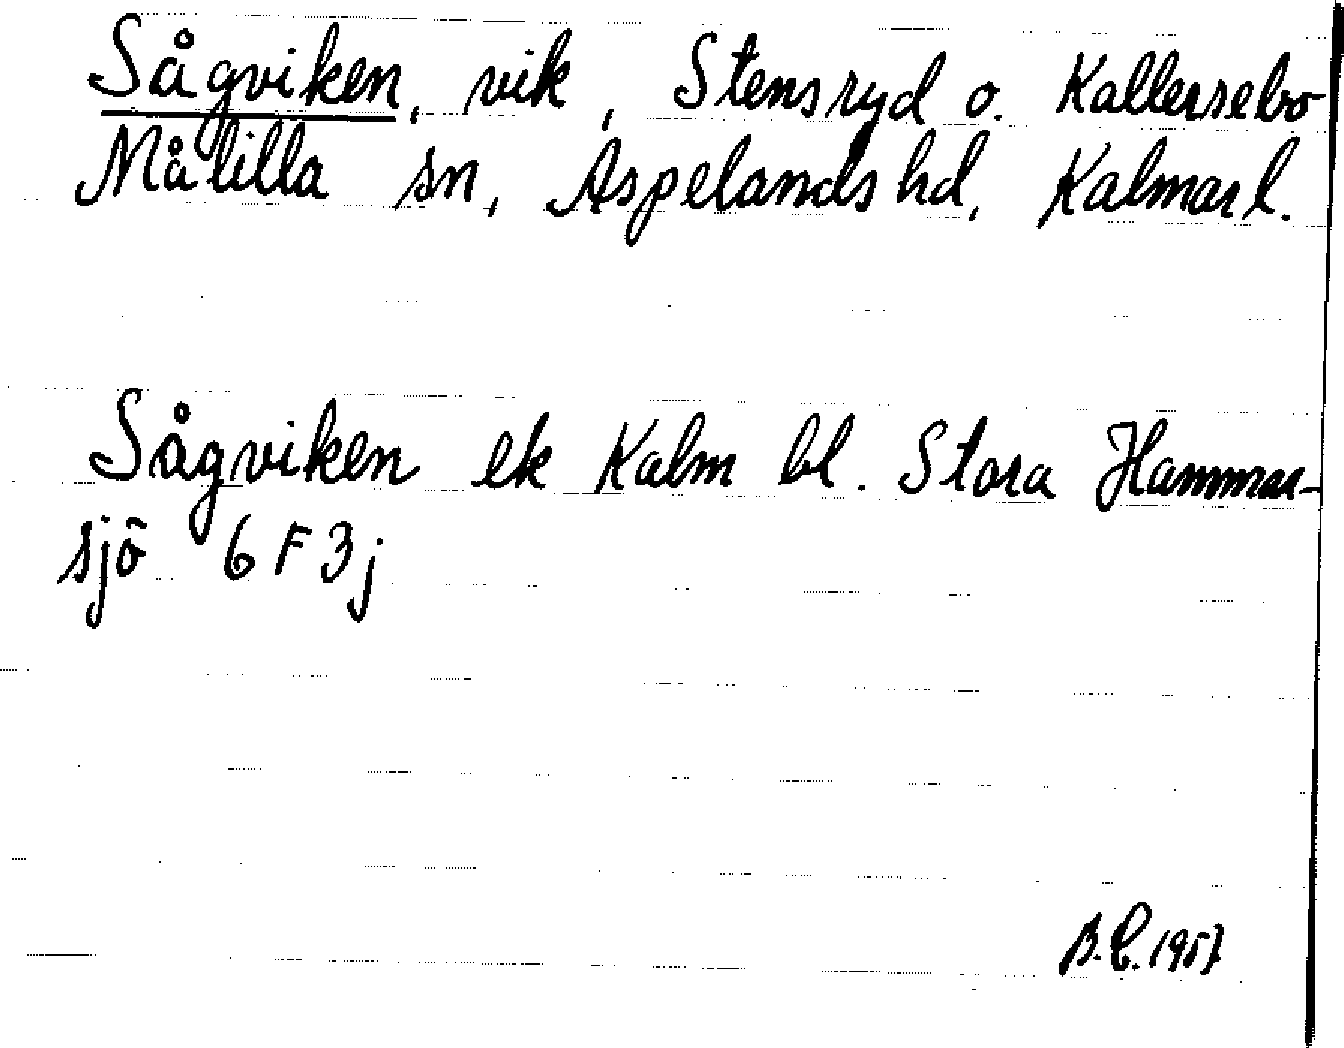 Sågviken, vik, Stensryd o. Kallersebo
Målilla sn, Aspelands hd, Kalmar l.
Sågviken ek Kalm bl. Stora Hammar-
sjö 6 F 3j
B.C. 1957